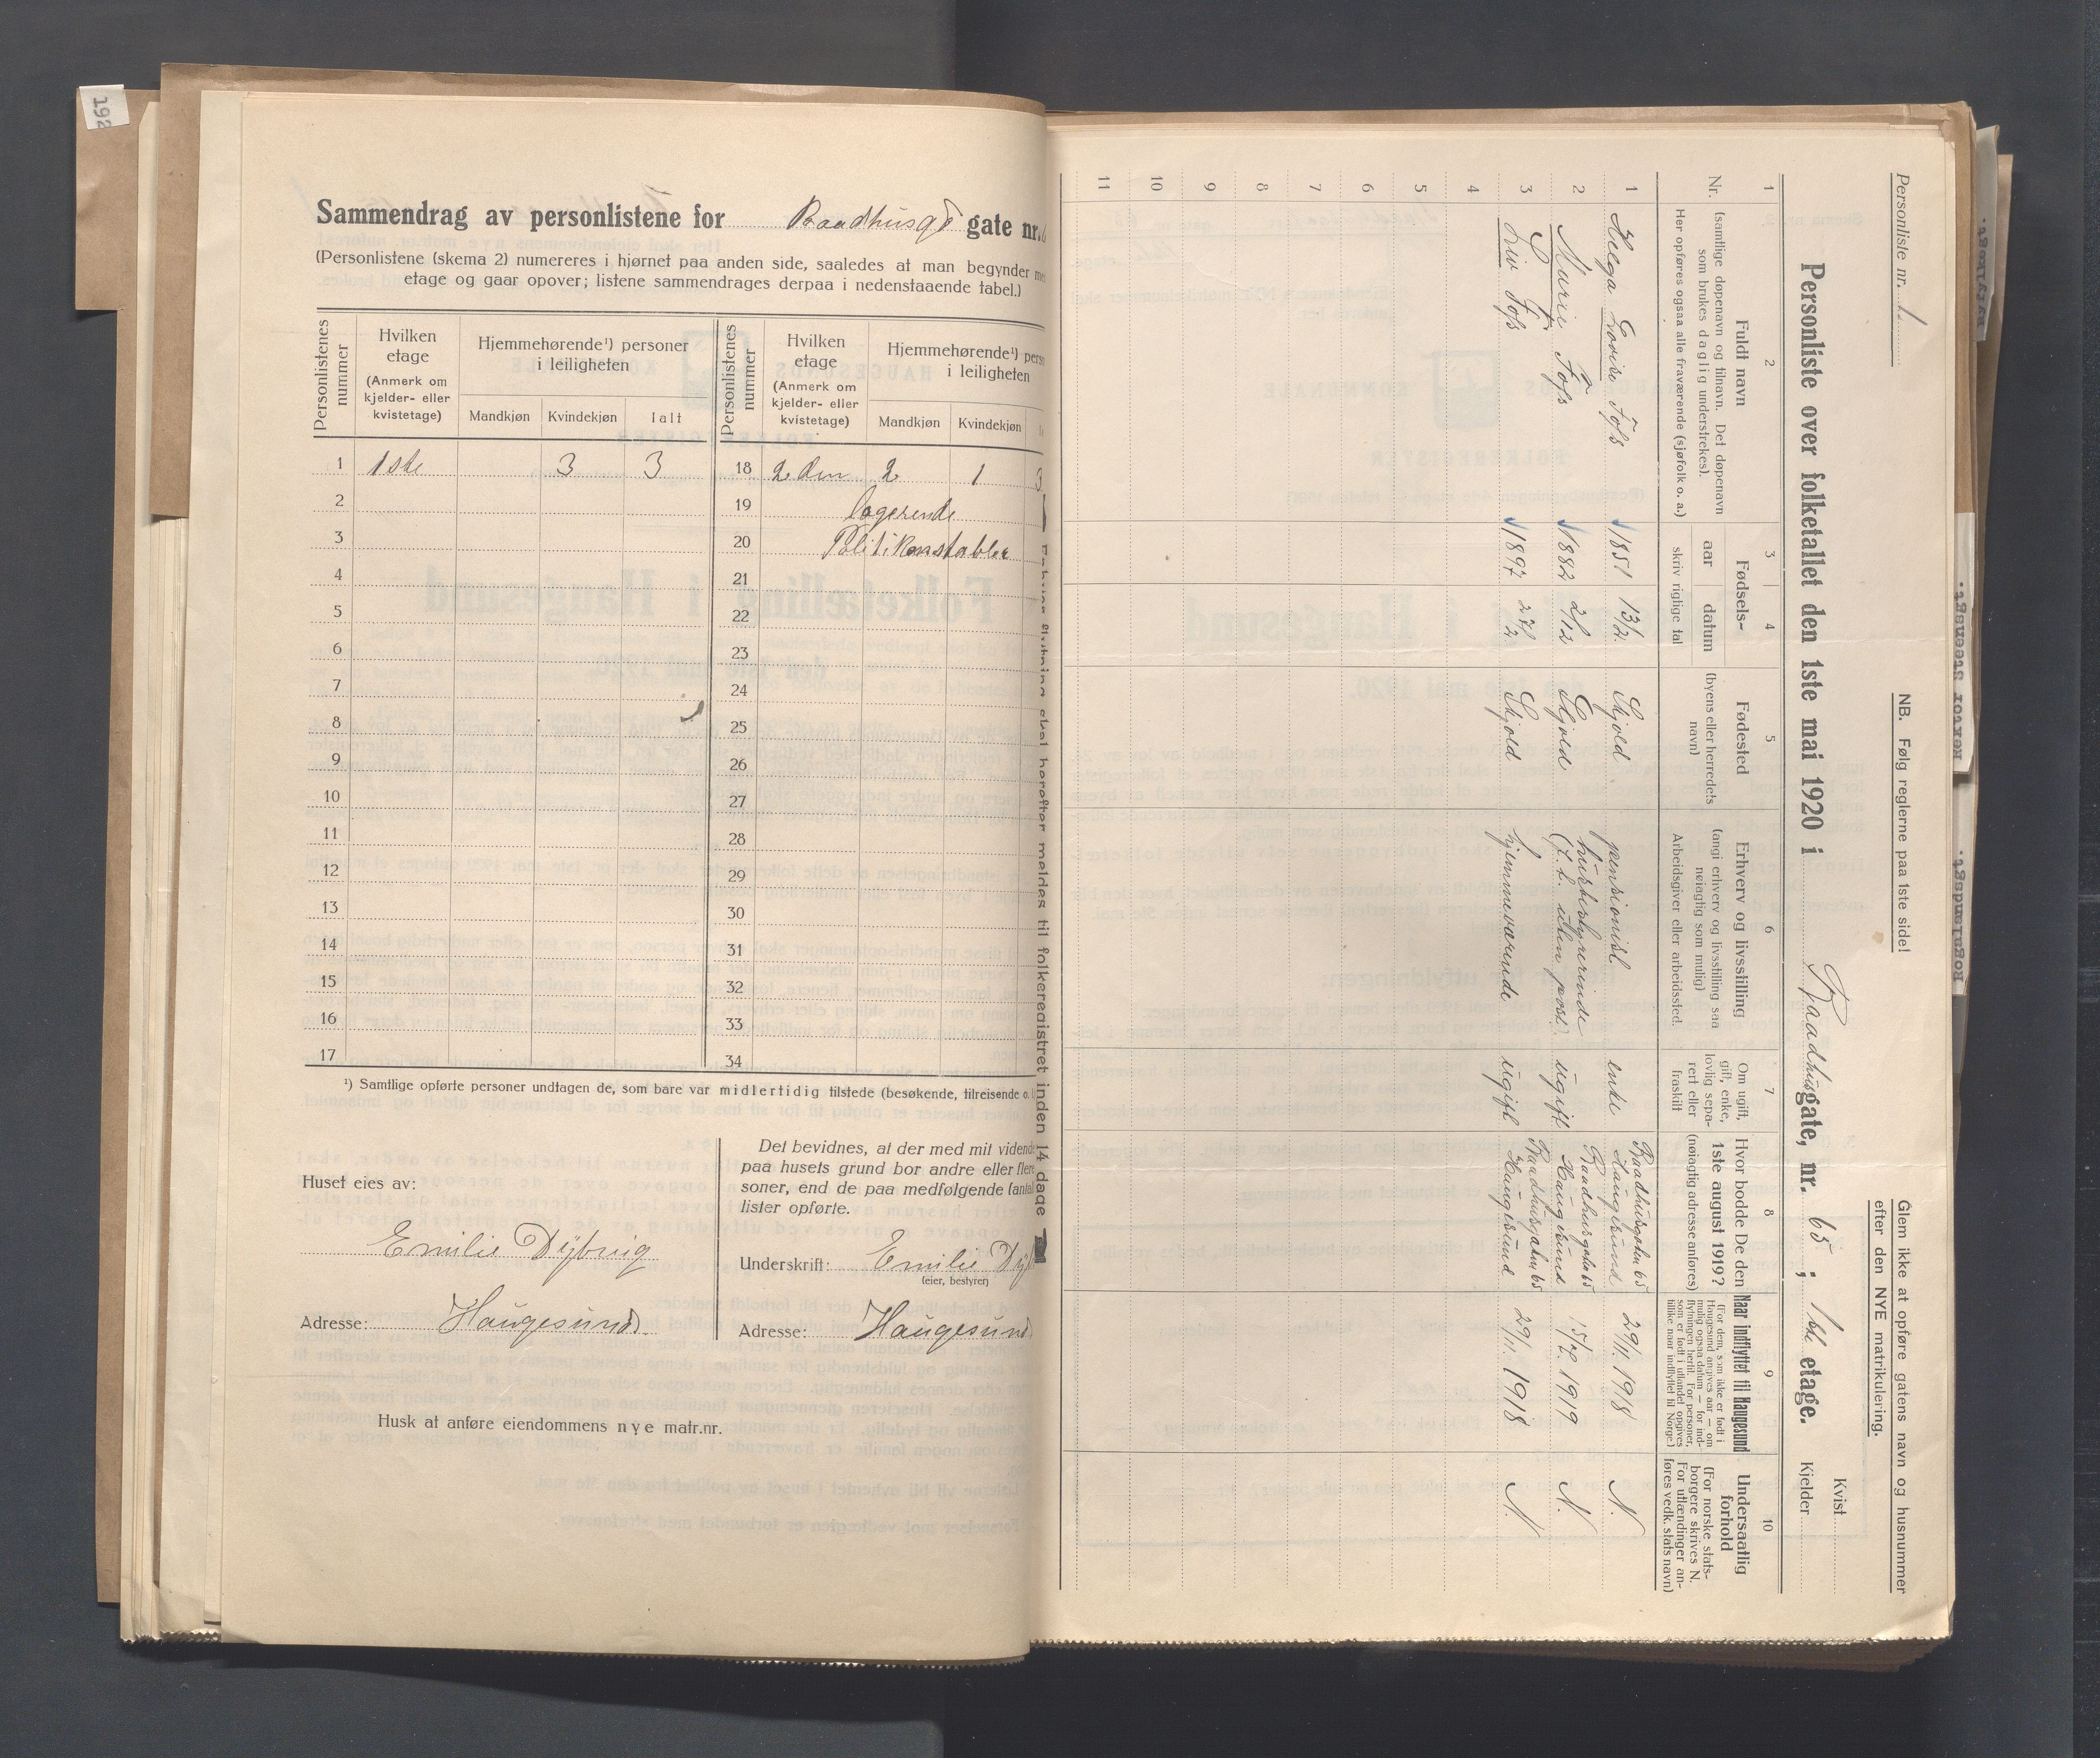 192
Sammendrag av personlistene for Raadhusgd gate nr.
(Personlistene (skema 2) numereres i hjørnet paa anden side, saaledes at man begynder
etage og gaar opover; listene sammendrages derpaa i nedenstaaende tabel.)
Personlistenes nummer
Hvilken etage (Anmerk om kjelder- eller kvistetage)
Hjemmehørende¹) personer i leiligheten
Mandkjøn Kvindekjøn Ialt
Personlistenes nummer
Hvilken etage (Anmerk om kjelder- eller kvistetage)
Hjemmehørende¹) i leiligheten
Mandkjøn Kvindekjøn
1 1ste 3 3 18 2den 2 1 3
2 19 logerende
3 20 Politikonstabler
4 21
5 22
6 23
7 24
8 25
9 26
10 27
11 28
12 29
13 30
14 31
15 32
16 33
17 34
¹) Samtlige opførte personer undtagen de, som bare var midlertidig tilstede (besøkende, tilreisende o.
Huset eies av:
Emilie Dybvig
Adresse: Haugesund
Det bevidnes, at der med mit vidende
paa husets grund bor andre eller flere
soner, end de paa medfølgende (antal
lister opførte.
Underskrift: Emilie
(eier, bestyrer)
Adresse: Haugesund
Husk at anføre eiendommens nye matr.nr.
skal herefter meldes til folkeregistret inden 14 dage
Personliste nr. 1
NB. Følg reglerne paa 1ste side!
Glem ikke at opføre gatens navn og husnummer
efter den NYE matrikulering.
Personliste over folketallet den 1ste mai 1920 i Raadhusgate, nr. 65; 1ste etage.
Kvist
Kjelder
1 2 3 4 5 6 7 8 9 10
Nr.
Fuldt navn
(samtlige døpenavn og tilnavn. Det døpenavn
som brukes daglig understrekes).
Her opføres ogsaa alle fraværende (sjøfolk o. a.)
Fødsels-
aar datum
skriv rigtige tal
Fødested
(byens eller herredets
navn)
Erhverv og livsstilling
(angi erhverv og livsstilling saa
nøiagtig som mulig)
Arbeidsgiver eller arbeidssted.
Om ugift,
gift, enke,
lovlig sepa-
rert eller
fraskilt
Hvor bodde De den
1ste august 1919?
(nøiagtig adresse anføres)
Naar indflyttet til Haugesund
(For dem, som ikke er født i
Haugesund angives aar — om
mulig ogsaa datum — for ind-
flytningen hertil. For personer,
som er født i utlandet opgives
tillike naar indflyttet til Norge.)
Undersaatlig
forhold
(For norske stats-
borgere skrives N.
For utlændinger an-
føres vedk. stats navn)
1 Helga Lovise Foss 1851 13/2. Skjold pensionist enke Raadhusgaten 65 Haugesund 29/11. 1918 N.
2 Marie Foss 1882 2/12 Skjold husbestyrerinde (f. t. uten post) ugift Raadhusgaten 65 Haugesund 15/7. 1919 N.
3 Liv Foss 1897 27/2 Skjold hjemmeværende ugift Raadhusgaten 65 Haugesund 29/11. 1918 N.
4
5
6
7
8
9
10
11
Rogalandsgt.